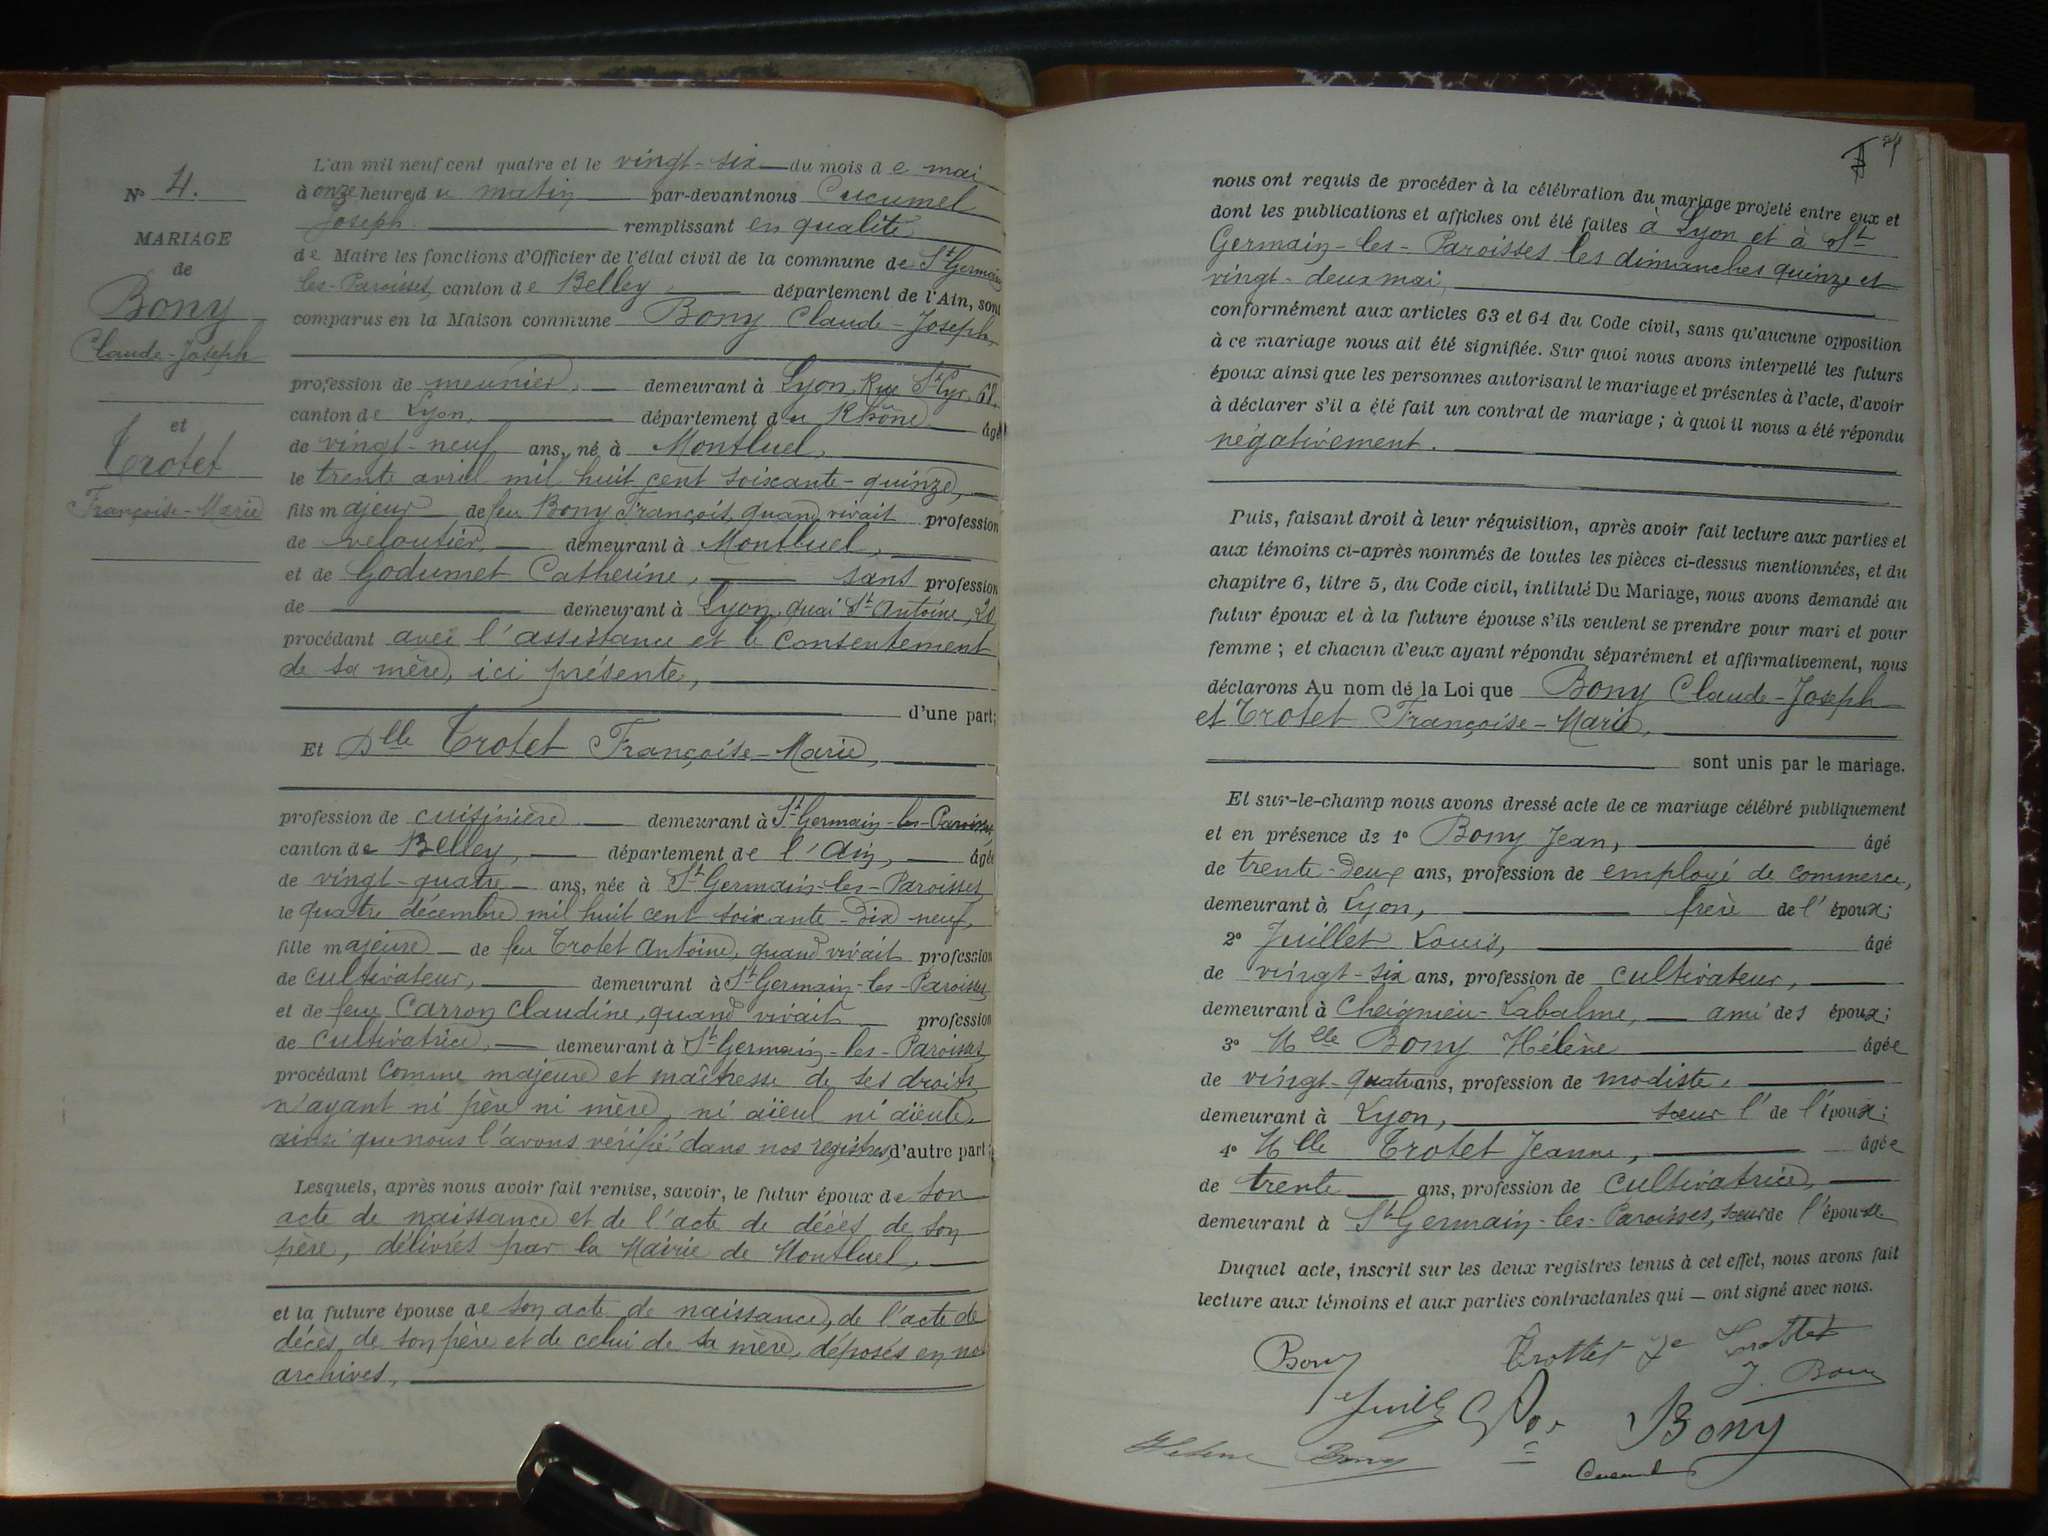 N° 4.
MARIAGE
de
Bony
Claude-Joseph
et
Trotet
Françoise-Marie
L'an mil neuf cent quatre et le vingt-six du mois de mai
à onze heures du matin par-devant nous Cucumel
Joseph remplissant en qualité
de Maire les fonctions d'Officier de l'état civil de la commune de St Germain
les-Paroisses, canton de Belley, département de l'Ain, sont
comparus en la Maison commune Bony Claude-Joseph,
profession de meunier, demeurant à Lyon, Rue St Cyr, 68,
canton de Lyon, département du Rhône âgé
de vingt-neuf ans, né à Montluel,
le trente avril mil huit cent soixante-quinze,
fils majeur de feu Bony François, quand vivait profession
de veloutier, demeurant à Montluel,
et de Godumet Catherine, sans profession
de demeurant à Lyon, quai St Antoine, 20,
procédant avec l'assistance et le consentement
de sa mère, ici présente,
d'une part;
Et Dlle Trotet Françoise-Marie,
profession de cuisinière demeurant à St Germain-les-Paroisses
canton de Belley, département de l'Ain, âgée
de vingt-quatre ans, née à St Germain-les-Paroisses
le quatre décembre mil huit cent soixante-dix-neuf,
fille majeure de feu Trotet Antoine, quand vivait profession
de cultivateur, demeurant à St Germain-les-Paroisses
et de feue Carron Claudine, quand vivait profession
de cultivatrice, demeurant à St Germain-les-Paroisses
procédant comme majeure et maîtresse de ses droits
n'ayant ni père ni mère, ni aïeul ni aïeule,
ainsi que nous l'avons vérifié dans nos registres, d'autre part;
Lesquels, après nous avoir fait remise, savoir, le futur époux de son
acte de naissance et de l'acte de décès de son
père, délivrés par la Mairie de Montluel,
et la future épouse de son acte de naissance, de l'acte de
décès de son père et de celui de sa mère, déposés en nos
archives,
nous ont requis de procéder à la célébration du mariage projeté entre eux et
dont les publications et affiches ont été faites à Lyon et à St
Germain-les-Paroisses les dimanches quinze et
vingt-deux mai,
conformément aux articles 63 et 64 du Code civil, sans qu'aucune opposition
à ce mariage nous ait été signifiée. Sur quoi nous avons interpellé les futurs
époux ainsi que les personnes autorisant le mariage et présentes à l'acte, d'avoir
à déclarer s'il a été fait un contrat de mariage; à quoi il nous a été répondu
négativement.
Puis, faisant droit à leur réquisition, après avoir fait lecture aux parties et
aux témoins ci-après nommés de toutes les pièces ci-dessus mentionnées, et du
chapitre 6, titre 5, du Code civil, intitulé Du Mariage, nous avons demandé au
futur époux et à la future épouse s'ils veulent se prendre pour mari et pour
femme; et chacun d'eux ayant répondu séparément et affirmativement, nous
déclarons Au nom de la Loi que Bony Claude-Joseph
et Trotet Françoise-Marie,
sont unis par le mariage.
Et sur-le-champ nous avons dressé acte de ce mariage célébré publiquement
et en présence de 1° Bony Jean, âgé
de trente-deux ans, profession de employé de commerce,
demeurant à Lyon, frère de l'époux;
2° Juillet Louis, âgé
de vingt-six ans, profession de cultivateur,
demeurant à Cheignieu-Labalme, ami des époux;
3° Mlle Bony Hélène âgée
de vingt-quatre ans, profession de modiste,
demeurant à Lyon, sœur de l'époux;
4° Mlle Trotet Jeanne, âgée
de trente ans, profession de cultivatrice,
demeurant à St Germain-les-Paroisses, sœur de l'épouse
Duquel acte, inscrit sur les deux registres tenus à cet effet, nous avons fait
lecture aux témoins et aux parties contractantes qui ont signé avec nous.
Bony Trottet Je Trottet
J. Bony
Bony
Hélène Bony
Cucumel